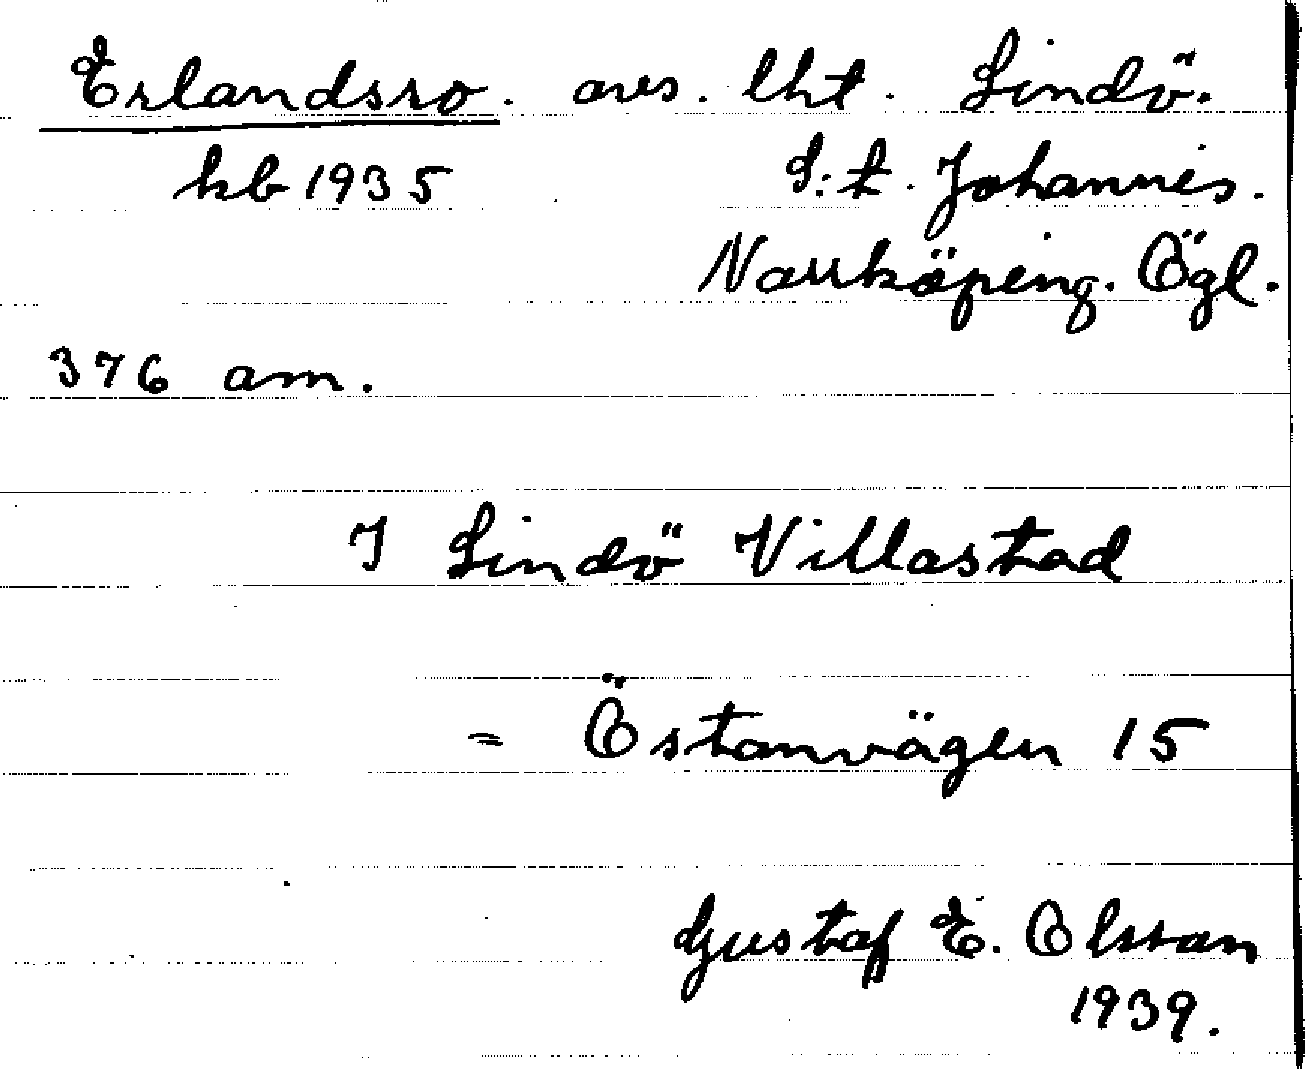 Erlandsro. avs. lht. Lindö.
kb 1935 S:t. Johannis.
Norrköping. Ögl.
376 am.
I Lindö Villastad
= Östanvägen 15
Gustaf E. Olsson
1939.